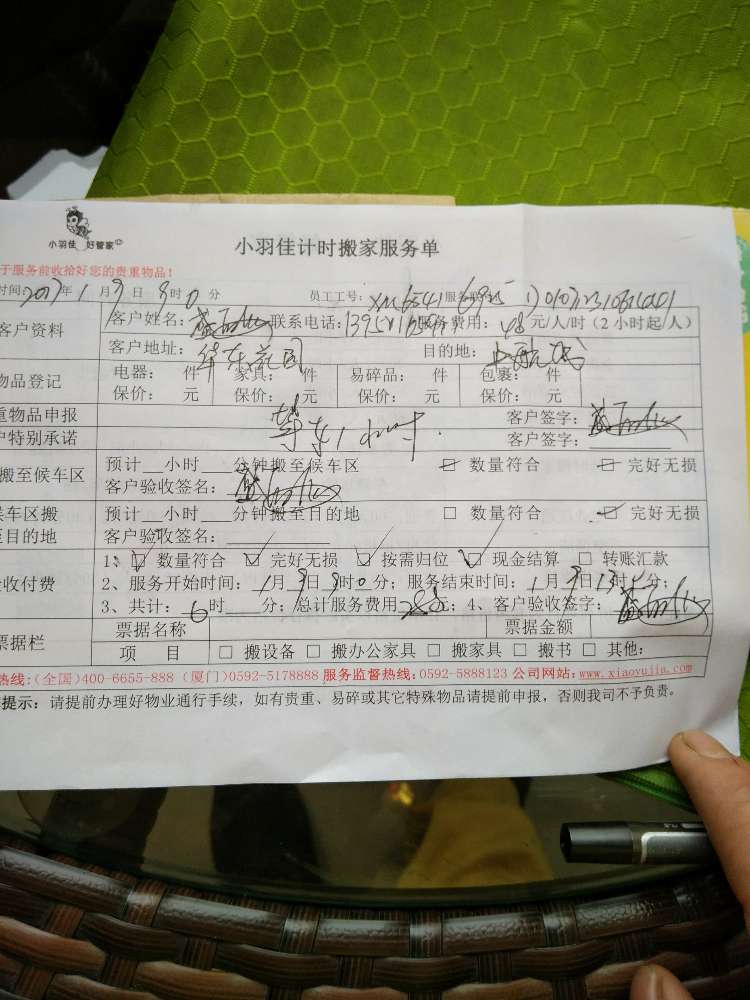 小羽佳 好管家
小羽佳计时搬家服务单
于服务前收拾好您的贵重物品！
时间：2017年1月9日9时0分 员工工号：
客户资料 客户姓名： 联系电话： 服务费用：48元/人/时（2小时起/人）
客户地址：华东花园 目的地：
物品登记 电器： 件 家具： 件 易碎品： 件 包裹： 件
保价： 元 保价： 元 保价： 元 保价： 元
重物品申报 客户签字：
户特别承诺 客户签字：
搬至候车区 预计__小时___分钟搬至候车区 数量符合 完好无损
客户验收签名：
候车区搬 预计__小时___分钟搬至目的地 数量符合 完好无损
至目的地 客户验收签名：
验收付费 1、 数量符合 完好无损 按需归位 现金结算 转账汇款
2、服务开始时间：1月9日9时0分；服务结束时间：1月9日15时 分；
3、共计：6时___分；总计服务费用 ；4、客户验收签字：
票据栏 票据名称 票据金额
项 目 搬设备 搬办公家具 搬家具 搬书 其他：
热线：(全国)400-6655-888 (厦门)0592-5178888 服务监督热线：0592-5888123 公司网站：www.xiaoyujia.com
提示：请提前办理好物业通行手续，如有贵重、易碎或其它特殊物品请提前申报，否则我司不予负责。